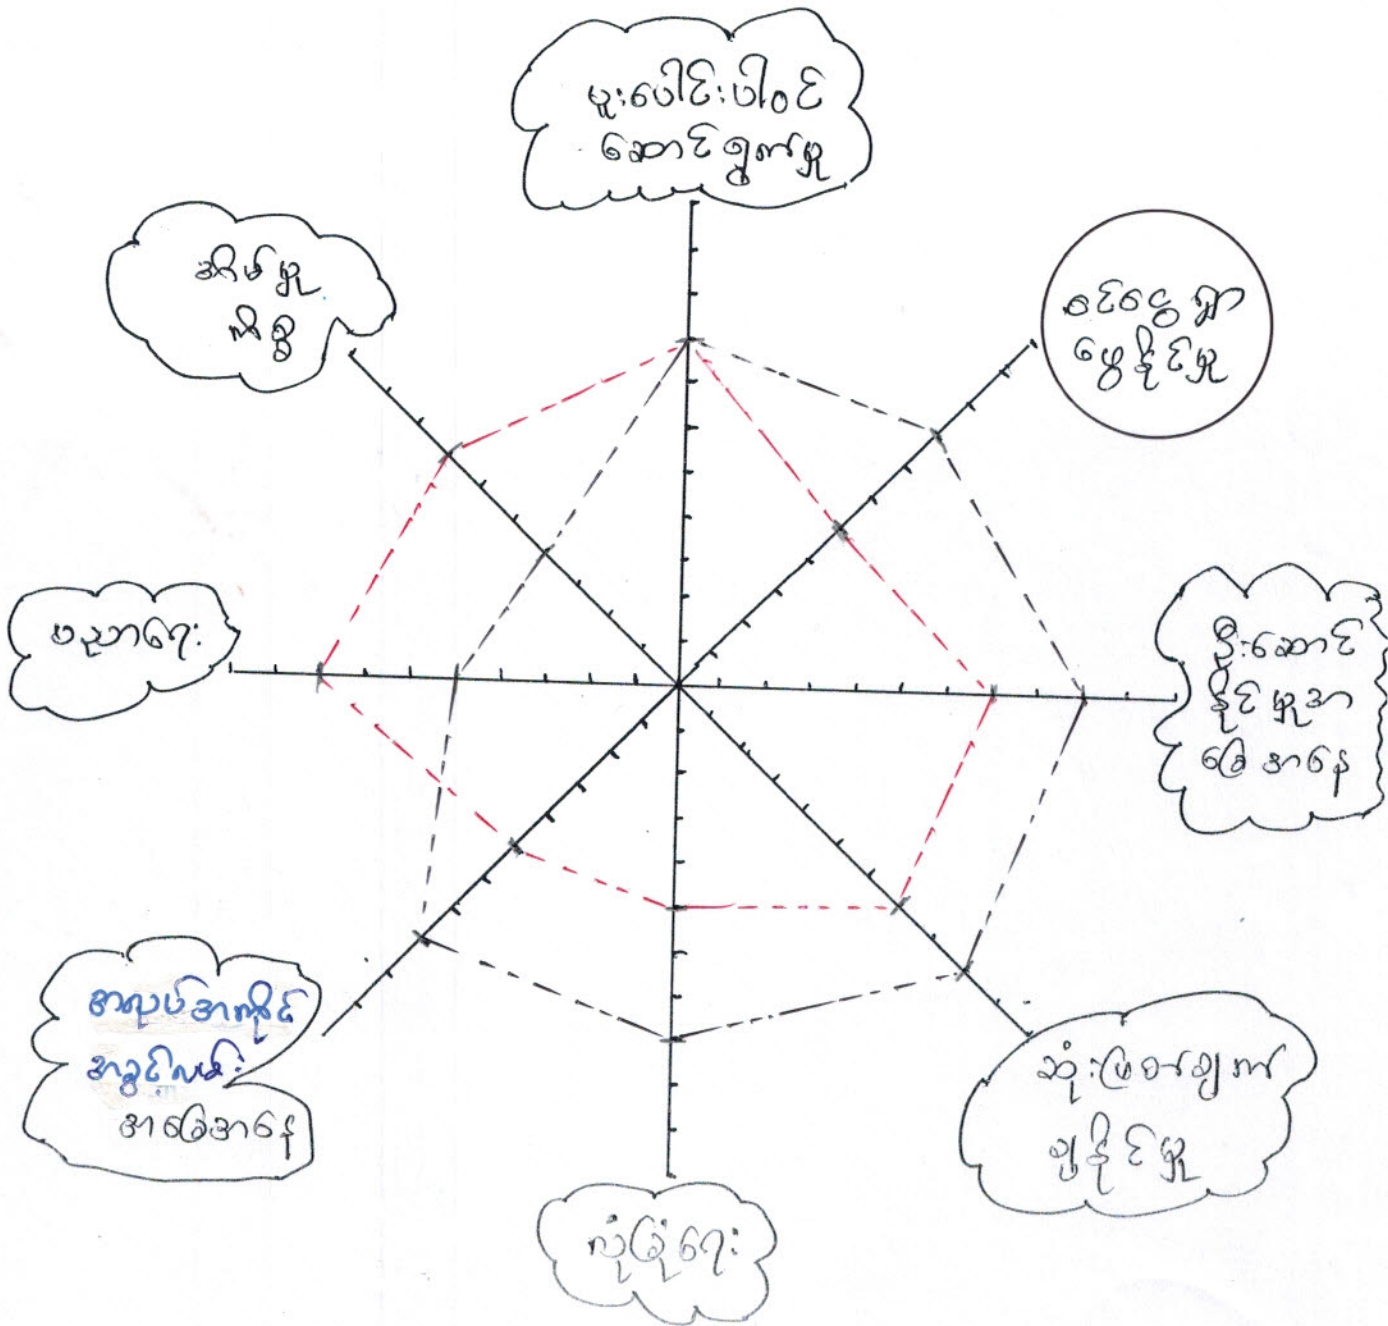 ပူးပေါင်းပါဝင်
ဆောင်ရွက်မှု
ဝင်ငွေရှာ
ဖွေနိုင်မှု
ဦးဆောင်
နိုင်မှုအ
ခြေအနေ
ဆုံးဖြတ်ချက်
ချနိုင်မှု
လုံခြုံရေး
အလုပ်အကိုင်
အခွင့်လမ်း
အခြေအနေ
ပညာရေး
အိမ်မှု
ကိစ္စ